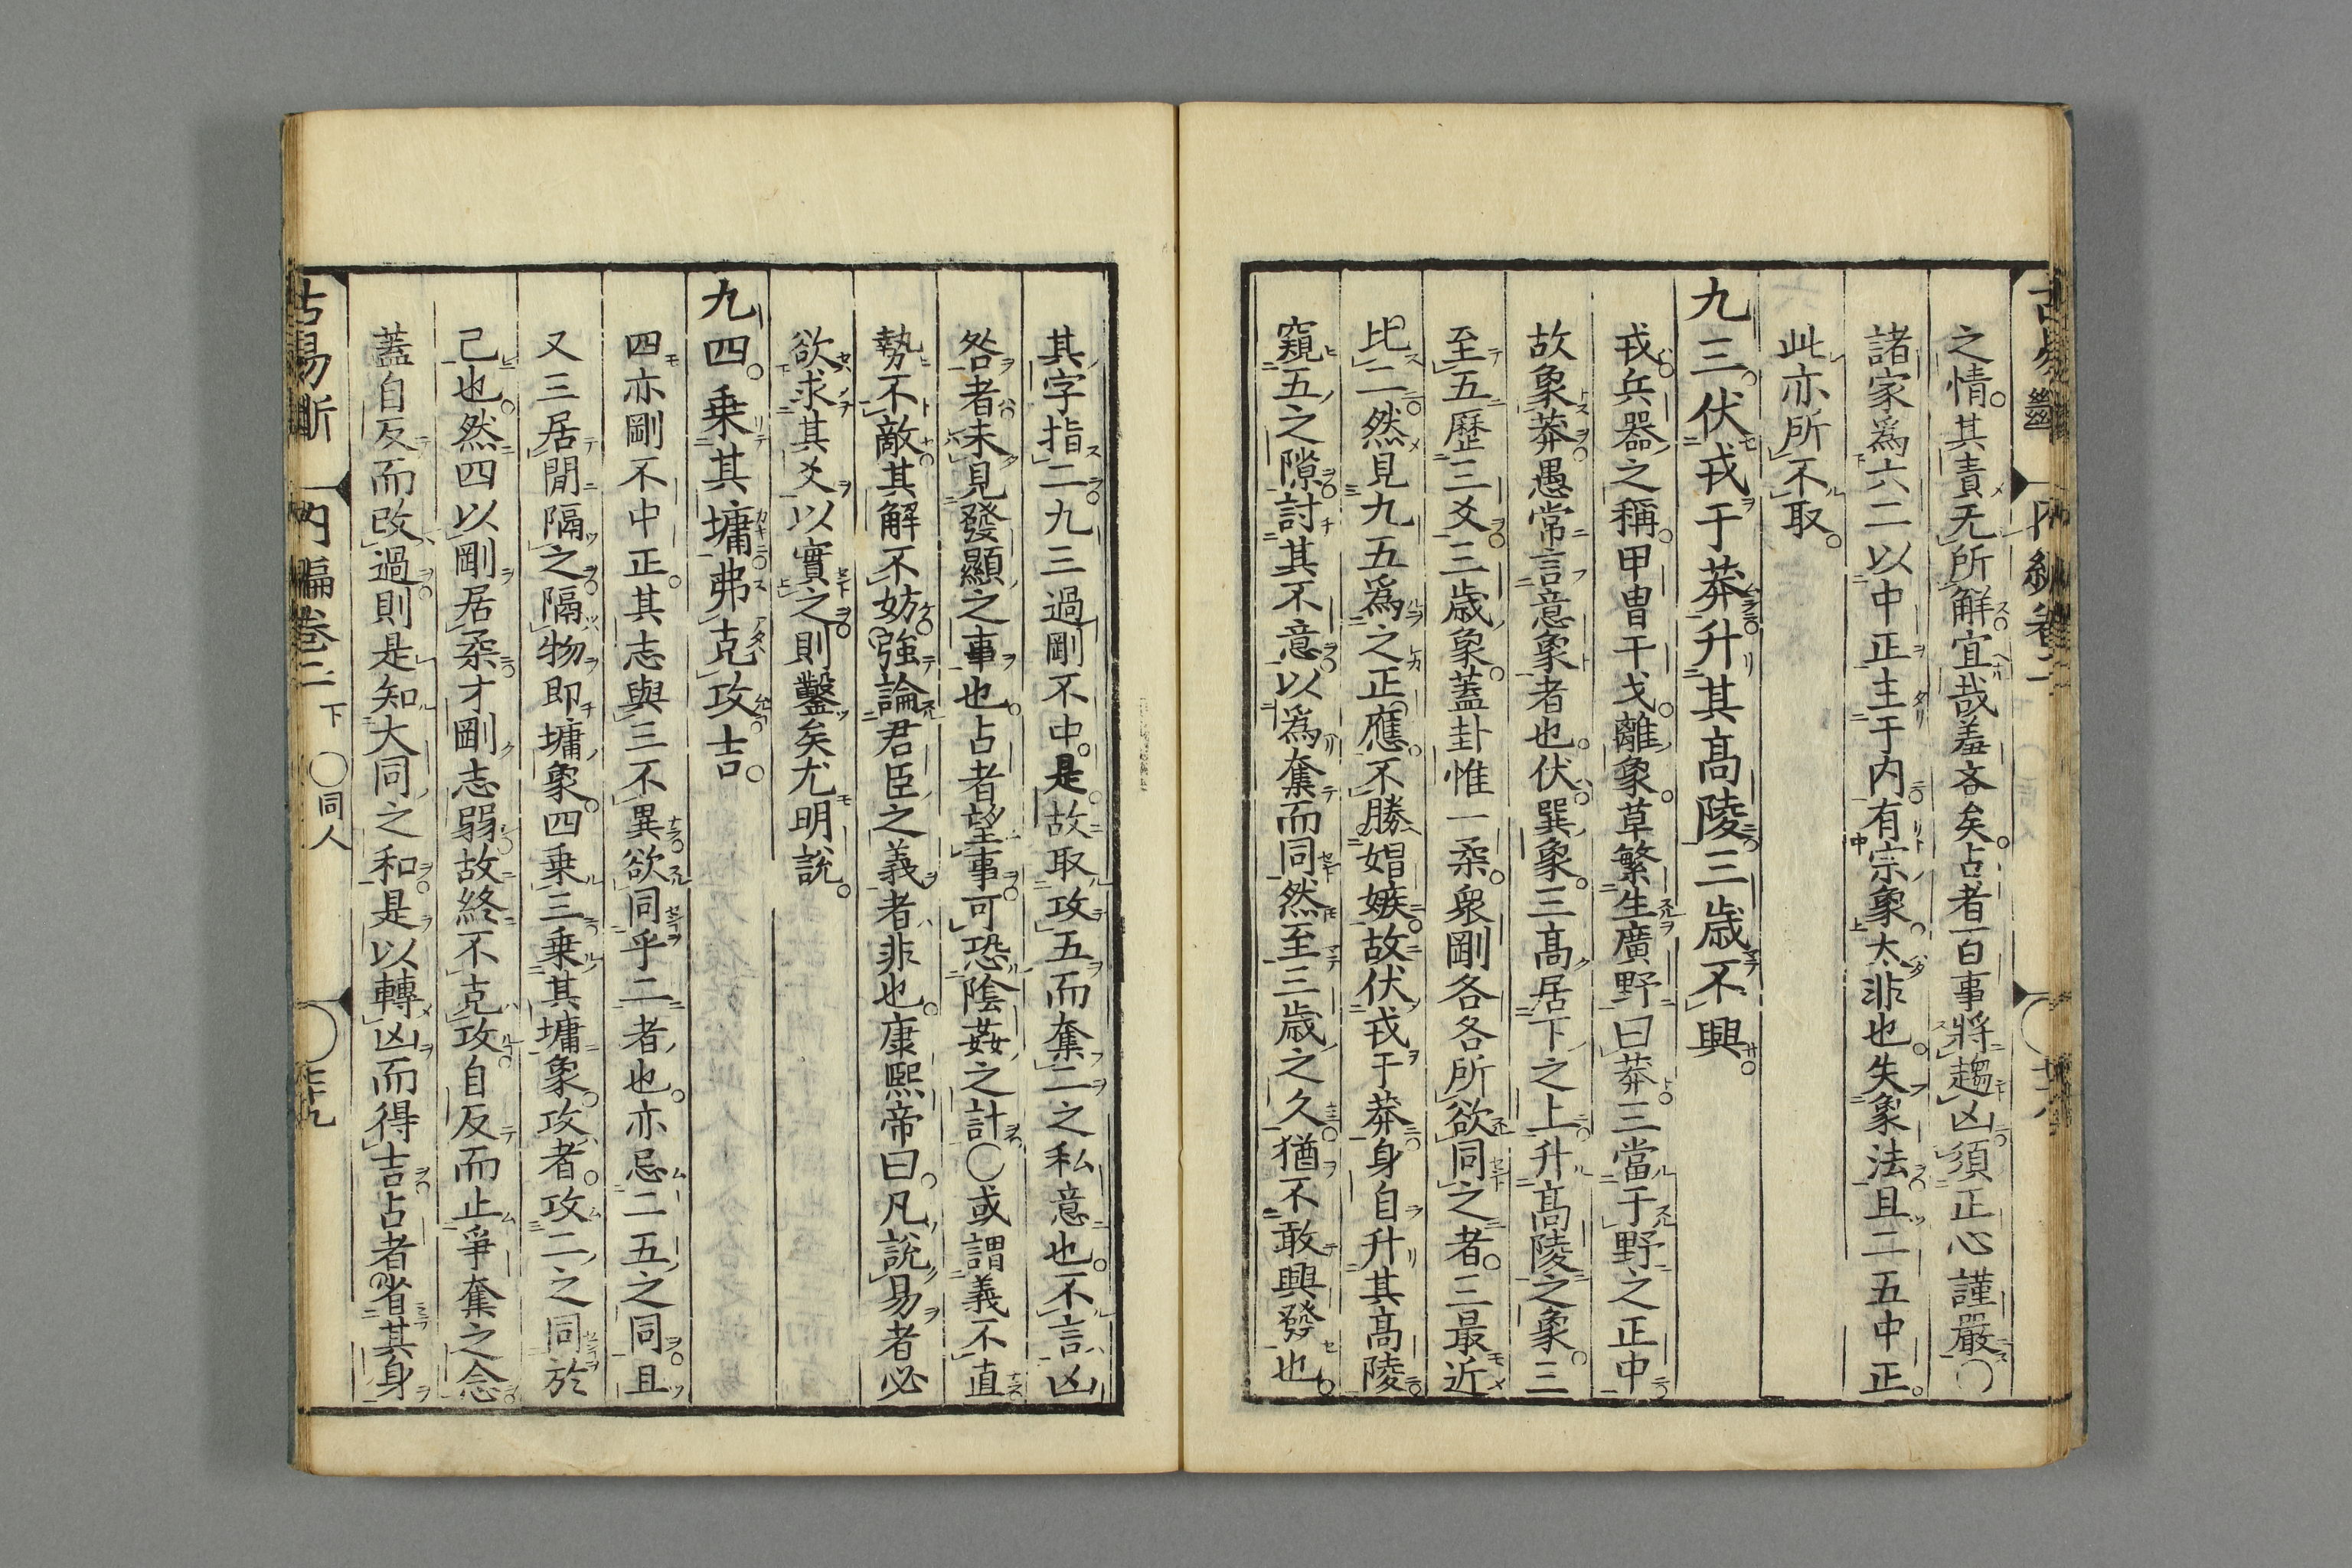 之情其責无所解宜哉羞吝矣占者百事將趨凶須正心謹嚴〇
諸家爲六二以中正主于内有宗象太非也失象法且二五中正
此亦所不取
九三伏戎于莽升其高陵三歳不興
戎兵器之稱甲冑干戈離象草繁生廣野曰莽三當于野之正中
故象莽愚常言意象者也伏巽象三高居下之上升高陵之象三
至五歷三爻三歳象蓋卦惟一柔衆剛各各所欲同之者三最近
比二然見九五爲之正應不勝娼嫉故伏戎于莽身自升其高陵
窺五之隙討其不意以爲奪而同然至三歳之久猶不敢興發也
其字指二九三過剛不中是故取攻五而奪二之私意也不言凶
咎者未見發顯之事也占者望事可恐陰姦之計〇或謂義不直
勢不敵其解不妨強論君臣之義者非也康熙帝曰凡說易者必
欲求其爻以實之則鑿矣尤明說
九四乗其墉弗克攻吉
四亦剛不中正其志與三不異欲同乎二者也亦忌二五之同且
又三居間隔之隔物即墉象四乗三乗其墉象攻者攻二之同於
己也然四以剛居柔才剛志弱故終不克攻自反而止爭奪之念
蓋自反而改過則是知大同之和是以轉凶而得吉占者省其身
古易斷 内編卷二 下 〇同人